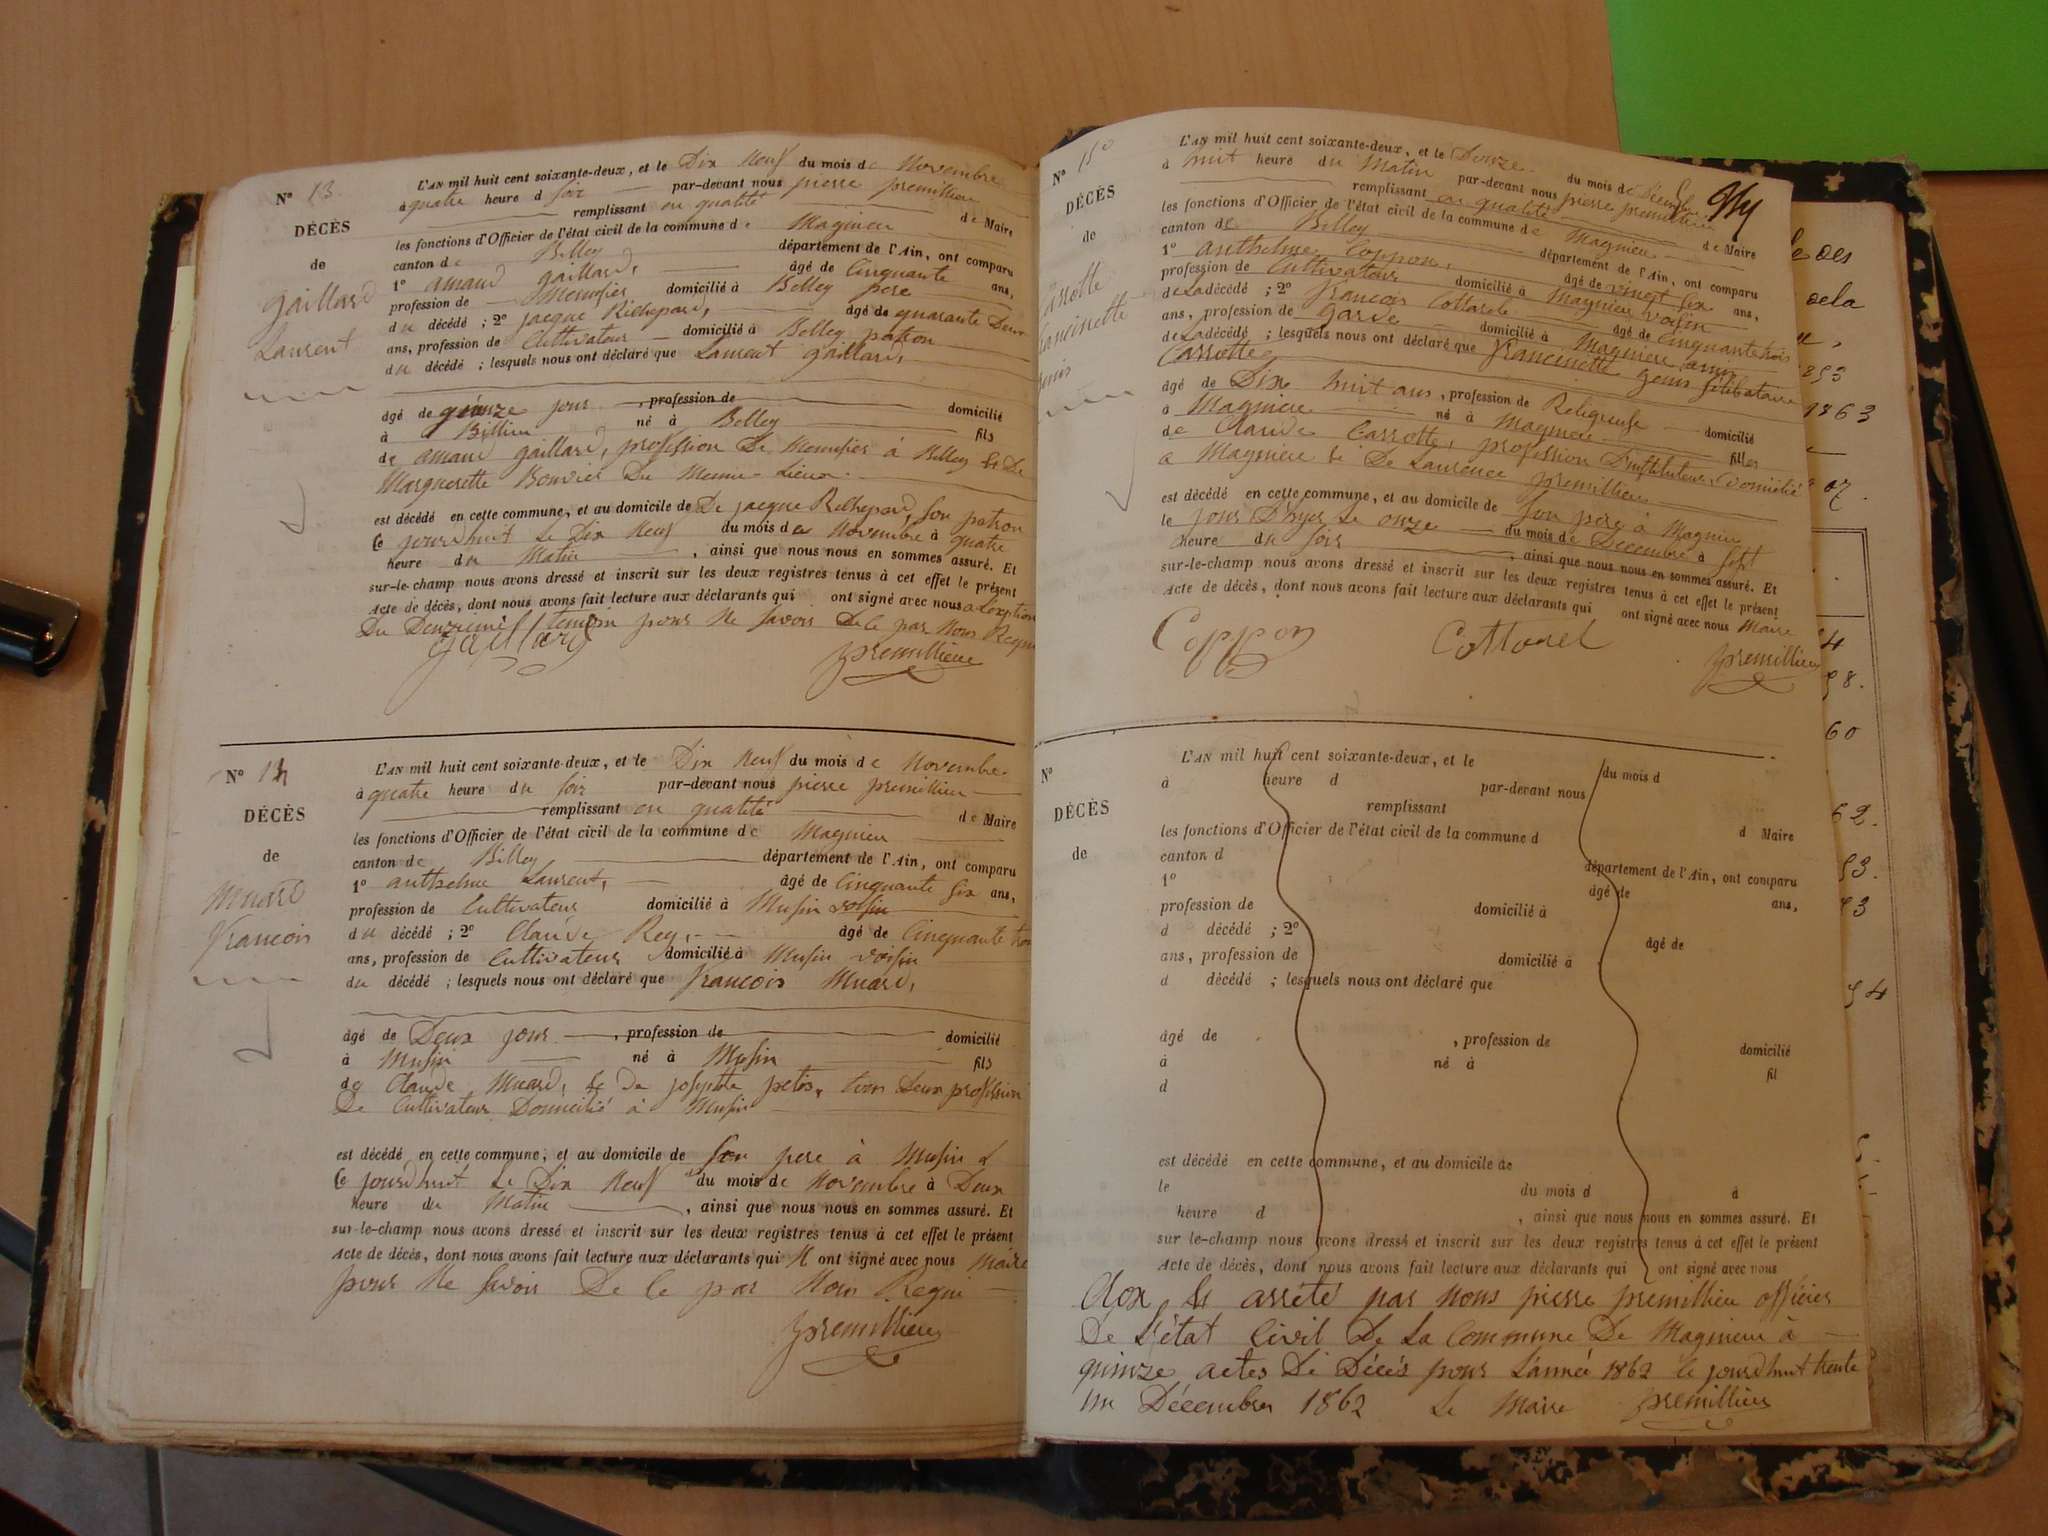 N° 13.
DÉCÈS
de
Gaillard
Laurent
L'AN mil huit cent soixante-deux, et le Dix Neuf du mois de Novembre
à quatre heure d soir par-devant nous pierre premillieu
remplissant en qualité de Maire
les fonctions d'Officier de l'état civil de la commune de Magnieu
canton de Belley département de l'Ain, ont comparu
1° amand gaillard, âgé de Cinquante ans,
profession de Menusier domicilié à Belley pere
du décédé ; 2° jacque Richepard, âgé de quarante Deux
ans, profession de Cultivateur domicilié à Belley patron
du décédé ; lesquels nous ont déclaré que Laurent gaillard,
âgé de quinze jours , profession de domicilié
à Billieu né à Belley fils
de amand gaillard, profession De Menusier à Belley & De
Marguerette Bouvier Du Meme Lieux.
est décédé en cette commune, et au domicile de De jacque Richepard, son patron
Ce jourdhuit Le Dix Neuf du mois de Novembre à quatre
heure du Matin , ainsi que nous nous en sommes assuré. Et
sur-le-champ nous avons dressé et inscrit sur les deux registres tenus à cet effet le présent
Acte de décès, dont nous avons fait lecture aux déclarants qui ont signé avec nous a Lexption
Du Deuxieme temoin pour Ne savoir De Ce par Nous Requi
Gaillard premillieu
N° 14
DÉCÈS
de
Muard
francois
L'AN mil huit cent soixante-deux, et le Dix Neuf du mois de Novembre
à quatre heure du soir par-devant nous pierre premillieu
remplissant en qualité de Maire
les fonctions d'Officier de l'état civil de la commune de Magnieu
canton de Billey département de l'Ain, ont comparu
1° anthelme Laurent, âgé de Cinquante six ans,
profession de Cultivateur domicilié à Musin voisin
du décédé ; 2° Claude Rey, âgé de Cinquante trois
ans, profession de Cultivateur domicilié à Musin voisin
du décédé ; lesquels nous ont déclaré que francois Muard,
âgé de Deux jour , profession de domicilié
à Musin né à Musin fils
de Claude Muard, & De josephte petit, tous Deux profession
De Cultivateur Domicilié à Musin
est décédé en cette commune, et au domicile de son pere à Musin
Ce jourdhuit Le Dix Neuf du mois de Novembre à Deux
heure du Matin , ainsi que nous nous en sommes assuré. Et
sur-le-champ nous avons dressé et inscrit sur les deux registres tenus à cet effet le présent
Acte de décès, dont nous avons fait lecture aux déclarants qui N ont signé avec nous Maire
pour Ne savoir De Ce par Nous Requi
premillieu
N° 15
DÉCÈS
de
francinette
L'AN mil huit cent soixante-deux, et le Douze du mois de Décembre
à huit heure du Matin par-devant nous pierre premillieu
remplissant en qualité de Maire
les fonctions d'Officier de l'état civil de la commune de Magnieu
canton de Billey département de l'Ain, ont comparu
1° anthelme Coppon, âgé de vingt six ans,
profession de Cultivateur domicilié à Magnieu voisin
de La décédé ; 2° francois Cottarel âgé de Cinquante trois
ans, profession de Garde domicilié à Magnieu ami
de La décédé ; lesquels nous ont déclaré que francinette genis Sélibataire
Carrotte
âgé de Dix huit ans , profession de Religeuse domicilié
à Magnieu né à Magnieu filles
de Claude Carrotte, profession D'instituteur Domicilié
a Magnieu & De Laurence premillieu
est décédé en cette commune, et au domicile de son pere à Magnieu
le jour D'hyer Le onze du mois de Decembre à sept
heure du soir , ainsi que nous nous en sommes assuré. Et
sur-le-champ nous avons dressé et inscrit sur les deux registres tenus à cet effet le présent
Acte de décès, dont nous avons fait lecture aux déclarants qui ont signé avec nous Maire
Coppon Cottarel premillieu
N°
DÉCÈS
de
L'AN mil huit cent soixante-deux, et le du mois d
à heure d par-devant nous
remplissant d Maire
les fonctions d'Officier de l'état civil de la commune d
canton d département de l'Ain, ont comparu
1° âgé de ans,
profession de domicilié à
d décédé ; 2° âgé de
ans, profession de domicilié à
d décédé ; lesquels nous ont déclaré que
âgé de , profession de domicilié
à né à fil
d
est décédé en cette commune, et au domicile de
le du mois d à
heure d , ainsi que nous nous en sommes assuré. Et
sur le-champ nous avons dressé et inscrit sur les deux registres tenus à cet effet le présent
Acte de décès, dont nous avons fait lecture aux déclarants qui ont signé avec nous
Clox & arrété par Nous pierre premillieu officier
De L'état Civil De La Commune De Magnieu à
quinze actes De Décès pour L'année 1862 le jourdhuit trente
un Décembre 1862 Le Maire premillieu
1853
1863
60
62.
53.
53
54